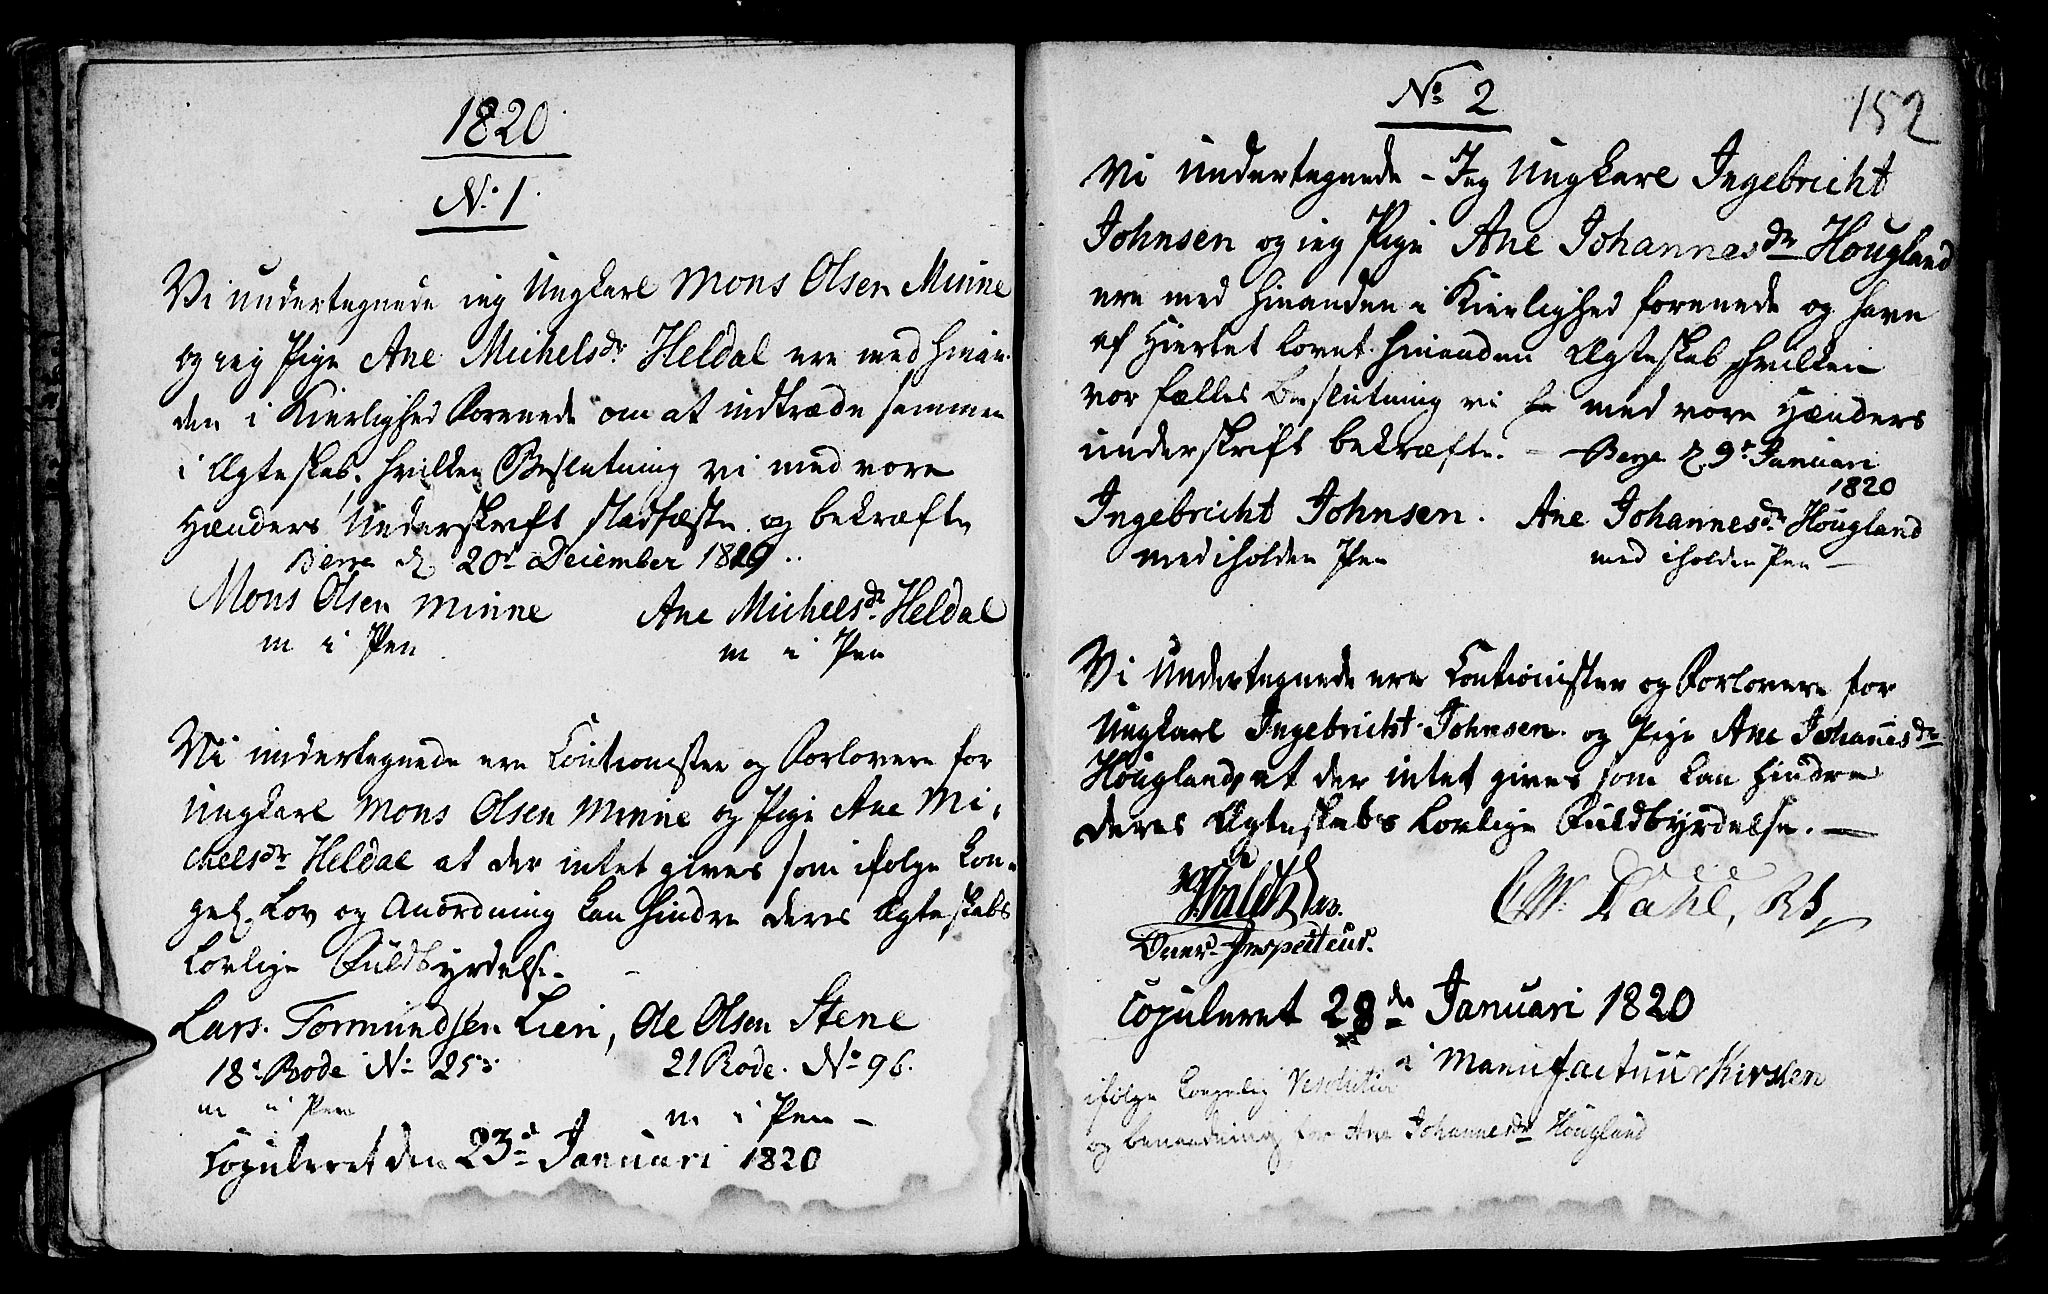 1820
No 1
Vi undertegnede ieg Ungkarl Mons Olsen Minne
og ieg Pige Ane Michelsdr Heldal ere med hinan
den i Kierlighed Forenede om at indtræde sammen
i Ægteskab, hvilken Beslutning vi med vore
Hænders Underskrift stadfæste og bekræfte
20de December 1819
Mons Olsen Minne Ane Michelsdr Heldal
m i Pen m i Pen
Vi undertegnede ere Cautionister og Forlovere for
Ungkarl Mons Olsen Minne og Pige Ane Mi-
chelsdr Heldal at der intet gives som ifølge Kon-
gel. Lov og Anordning kan hindre deres Ægteskabs
Lovlige Fuldbyrdelse.
Lars Tormundsen Lien, Ole Olsen Stene
18de Rode No 25 21 Rode. No 96.
m i Pen m i Pen
Copuleret den 23de Januari 1820
No 2
152
Vi undertegnede - Jeg Ungkarl Ingebricht
Johnsen og ieg Pige Ane Johannesdr Hougland
ere med hinanden i Kierlighed forenede og have
af Hiertet lovet hinanden Ægteskab, hvilken
vor fælles Beslutning vi med vore Hænders
underskrift bekræfte. - 9de Januari
1820
Ingebricht Johnsen. Ane Johannesdr Hougland
med iholden Pen med iholden Pen
Vi Undertegnede ere Cautionister og Forlovere for
Ungkarl Ingebricht Johnsen og Pige Ane Johanesdr
Hougland, at der intet gives som kan hindre
deres Ægteskabs Lovlige Fuldbyrdelse.
Dahl,
Over-Inspecteur.
Copuleret 28de Januari 1820
i Manufactuur Kirken
ifølge Kongelig Resolution
og benaadning for Ane Johannesdr Hougland